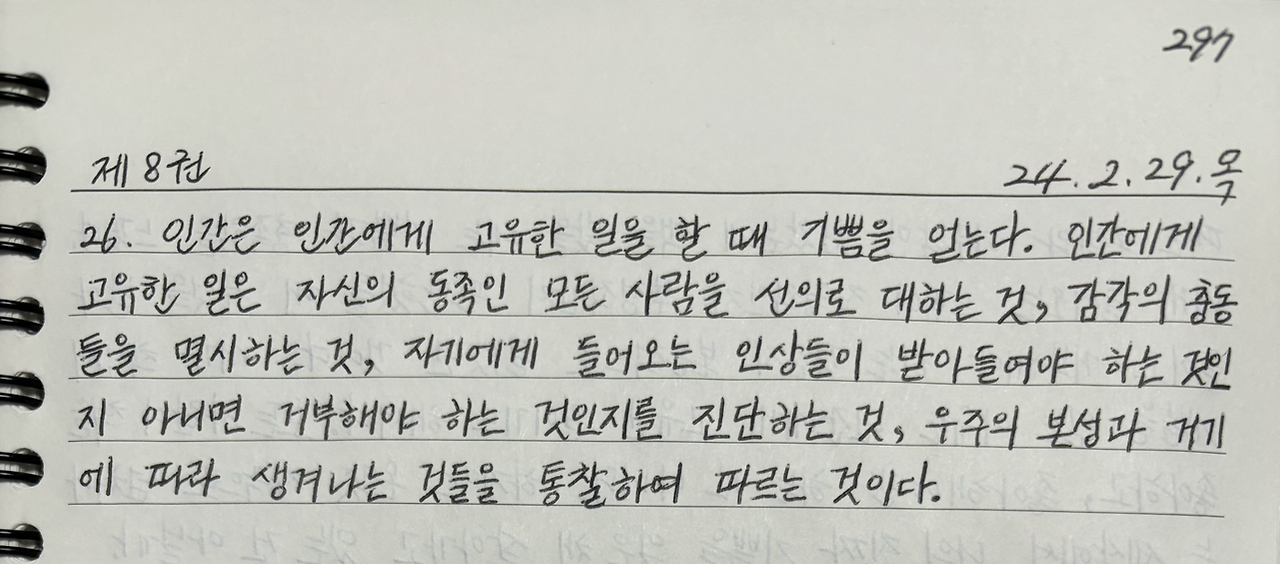 297
제 8권 24.2.29.목
26. 인간은 인간에게 고유한 일을 할 때 기쁨을 얻는다. 인간에게
고유한 일은 자신의 동족인 모든 사람을 선의로 대하는 것, 감각의 충동
들을 멸시하는 것, 자기에게 들어오는 인상들이 받아들여야 하는 것인
지 아니면 거부해야 하는 것인지를 진단하는 것, 우주의 본성과 거기
에 따라 생겨나는 것들을 통찰하여 따르는 것이다.